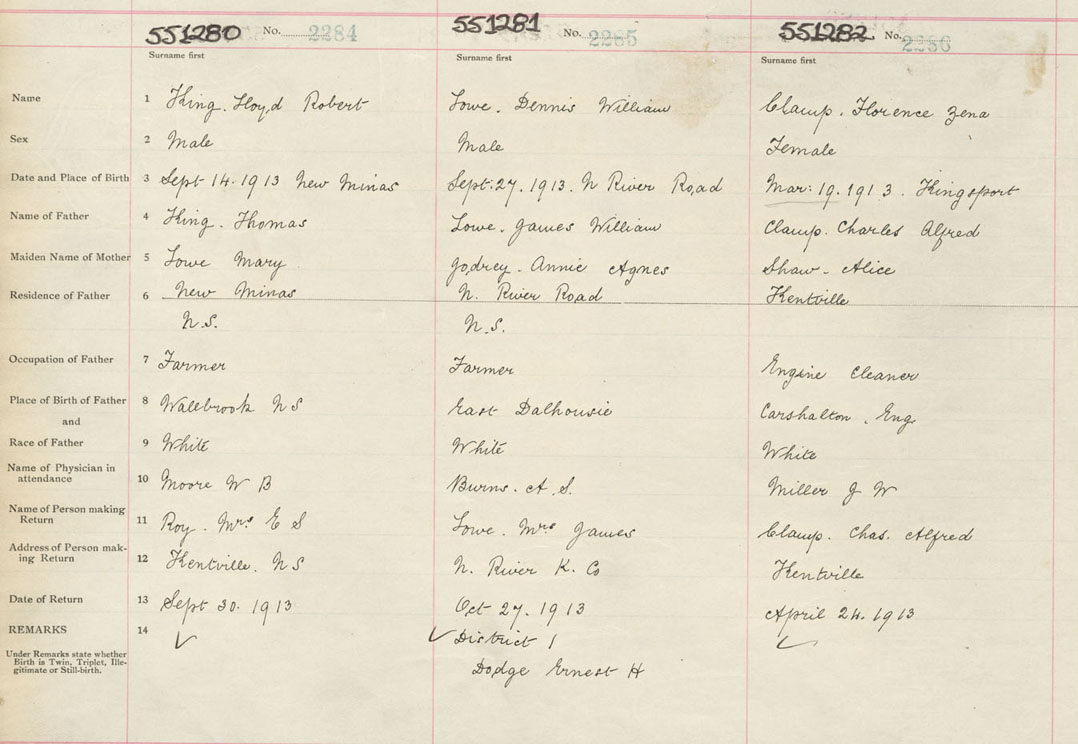 551280 No. 2284 551281 No. 2285 551282 No. 2286
Surname first Surname first Surname first
Name 1 King. Lloyd Robert Lowe. Dennis William Clamp. Florence Zena
Sex 2 Male Male Female
Date and Place of Birth 3 Sept 14. 1913 New Minas Sept. 27. 1913. N River Road Mar: 19. 1913. Kingsport
Name of Father 4 King. Thomas Lowe. James William Clamp. Charles Alfred
Maiden Name of Mother 5 Lowe Mary Godrey. Annie Agnes Shaw. Alice
Residence of Father 6 New Minas N. River Road Kentville
N.S. N.S.
Occupation of Father 7 Farmer Farmer Engine Cleaner
Place of Birth of Father 8 Wallbrook N S East Dalhousie Carshalton. Eng
and
Race of Father 9 White White White
Name of Physician in
attendance 10 Moore W B Burns. A. S. Miller J W
Name of Person making
Return 11 Roy. Mrs E S Lowe. Mrs James Clamp. Chas. Alfred
Address of Person mak-
ing Return 12 Kentville. N S N. River K. Co Kentville
Date of Return 13 Sept 30. 1913 Oct 27. 1913 April 24. 1913
REMARKS 14 ✓ ✓ District 1 ✓
Under Remarks state whether
Birth is Twin, Triplet, Ille-
gitimate or Still-birth.
Dodge Ernest H